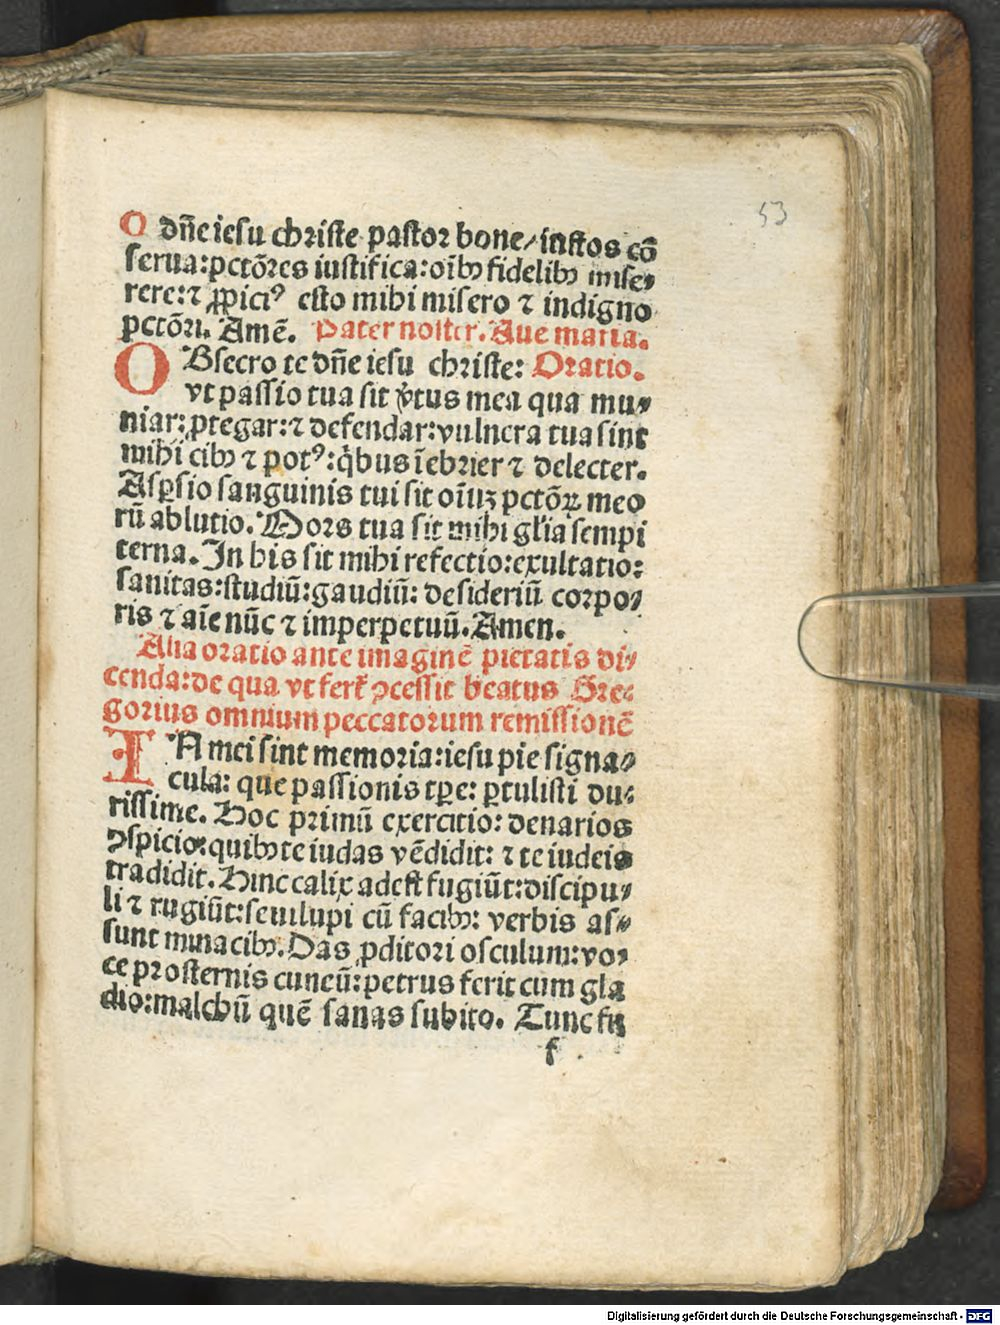 53
O dñe iesu christe pastor bone/ iustos cõ
serua: pctõres iustifica: oĩbꝰ fidelibꝰ mise⸗
rere: ⁊ ꝓpiciꝰ esto mihi misero ⁊ indigno
pctõri. Amẽ. Pater noster. Aue maria.
OBsecro te dñe iesu christe: Oratio.
vt passio tua sit v̓tus mea qua mu⸗
niar: ꝓtegar: ⁊ defendar: vulnera tua sint
mihi cibꝰ ⁊ potꝰ: q̇bus ĩebrier ⁊ delecter.
Asp̱sio sanguinis tui sit oĩuꝫ pctõꝝ meo
rũ ablutio. Mors tua sit mihi gl̃ia sempi
terna. In his sit mihi refectio: exultatio:
sanitas: studiũ: gaudiũ: desideriũ corpo⸗
ris ⁊ aĩe nũc ⁊ imperpetuũ. Amen.
Alia oratio ante imaginẽ pietatis di⸗
cenda: de qua vt fert̃ ꝯcessit beatus Gre⸗
gorius omnium peccatorum remissionẽ
FA mei sint memoria: iesu pie signa⸗
cula: que passionis tꝑe: ꝑtulisti du⸗
rissime. Hoc primũ exercitio: denarios
ꝯspicio: quibꝰ te iudas vẽdidit: ⁊ te iudeis
tradidit. Hinc calix adest fugiũt: discipu⸗
li ⁊ rugiũt: seui lupi cũ facibꝰ: verbis as⸗
sunt minacibꝰ. Das ꝓditori osculum: vo⸗
ce prosternis cuneũ: petrus ferit cum gla
dio: malchũ quẽ sanas subito. Tunc fu
f
Digitalisierung gefördert durch die Deutsche Forschungsgemeinschaft - DFG